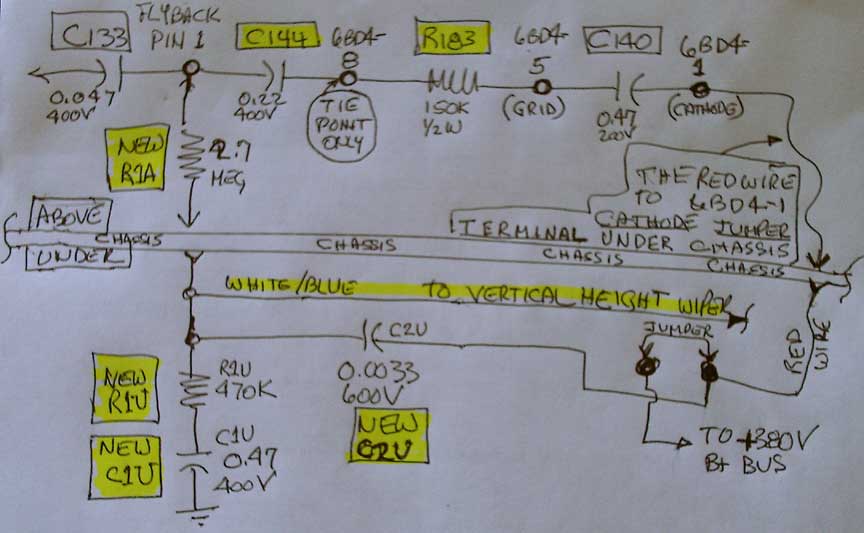 C133
FLYBACK
PIN 1
C144
6BD4-
8
R183
6BD4-
5
C140
6BD4-
1
0.047
400V
0.22
400V
TIE
POINT
ONLY
150K
1/2W
(GRID)
0.47
200V
(CATHODE)
NEW
R1A
2.7
MEG
THE RED WIRE
TO 6BD4-1
CATHODE JUMPER
TERMINAL UNDER CHASSIS
ABOVE
UNDER
CHASSIS
CHASSIS
CHASSIS
CHASSIS
WHITE/BLUE TO VERTICAL HEIGHT WIPER
C2U
JUMPER
RED WIRE
0.0033
600V
NEW
C2U
NEW
R1U
R1U
470K
NEW
C1U
C1U
0.47
400V
TO +380V
B+ BUS